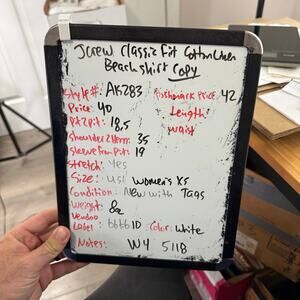 Jcrew Classic Fit Cotton Linen
Beach shirt Copy
Style#: AK283 Poshmark Price: 42
Price: 40 Length:
Pit2Pit: 18.5 waist
Shoulder2Hem: 35
Sleeve from Pit: 19
Stretch: Yes
Size: us: Women's XS
Condition: New with Tags
Weight: 8oz
Vendoo
Label: 6666ID Color: White
Notes: W4 511B